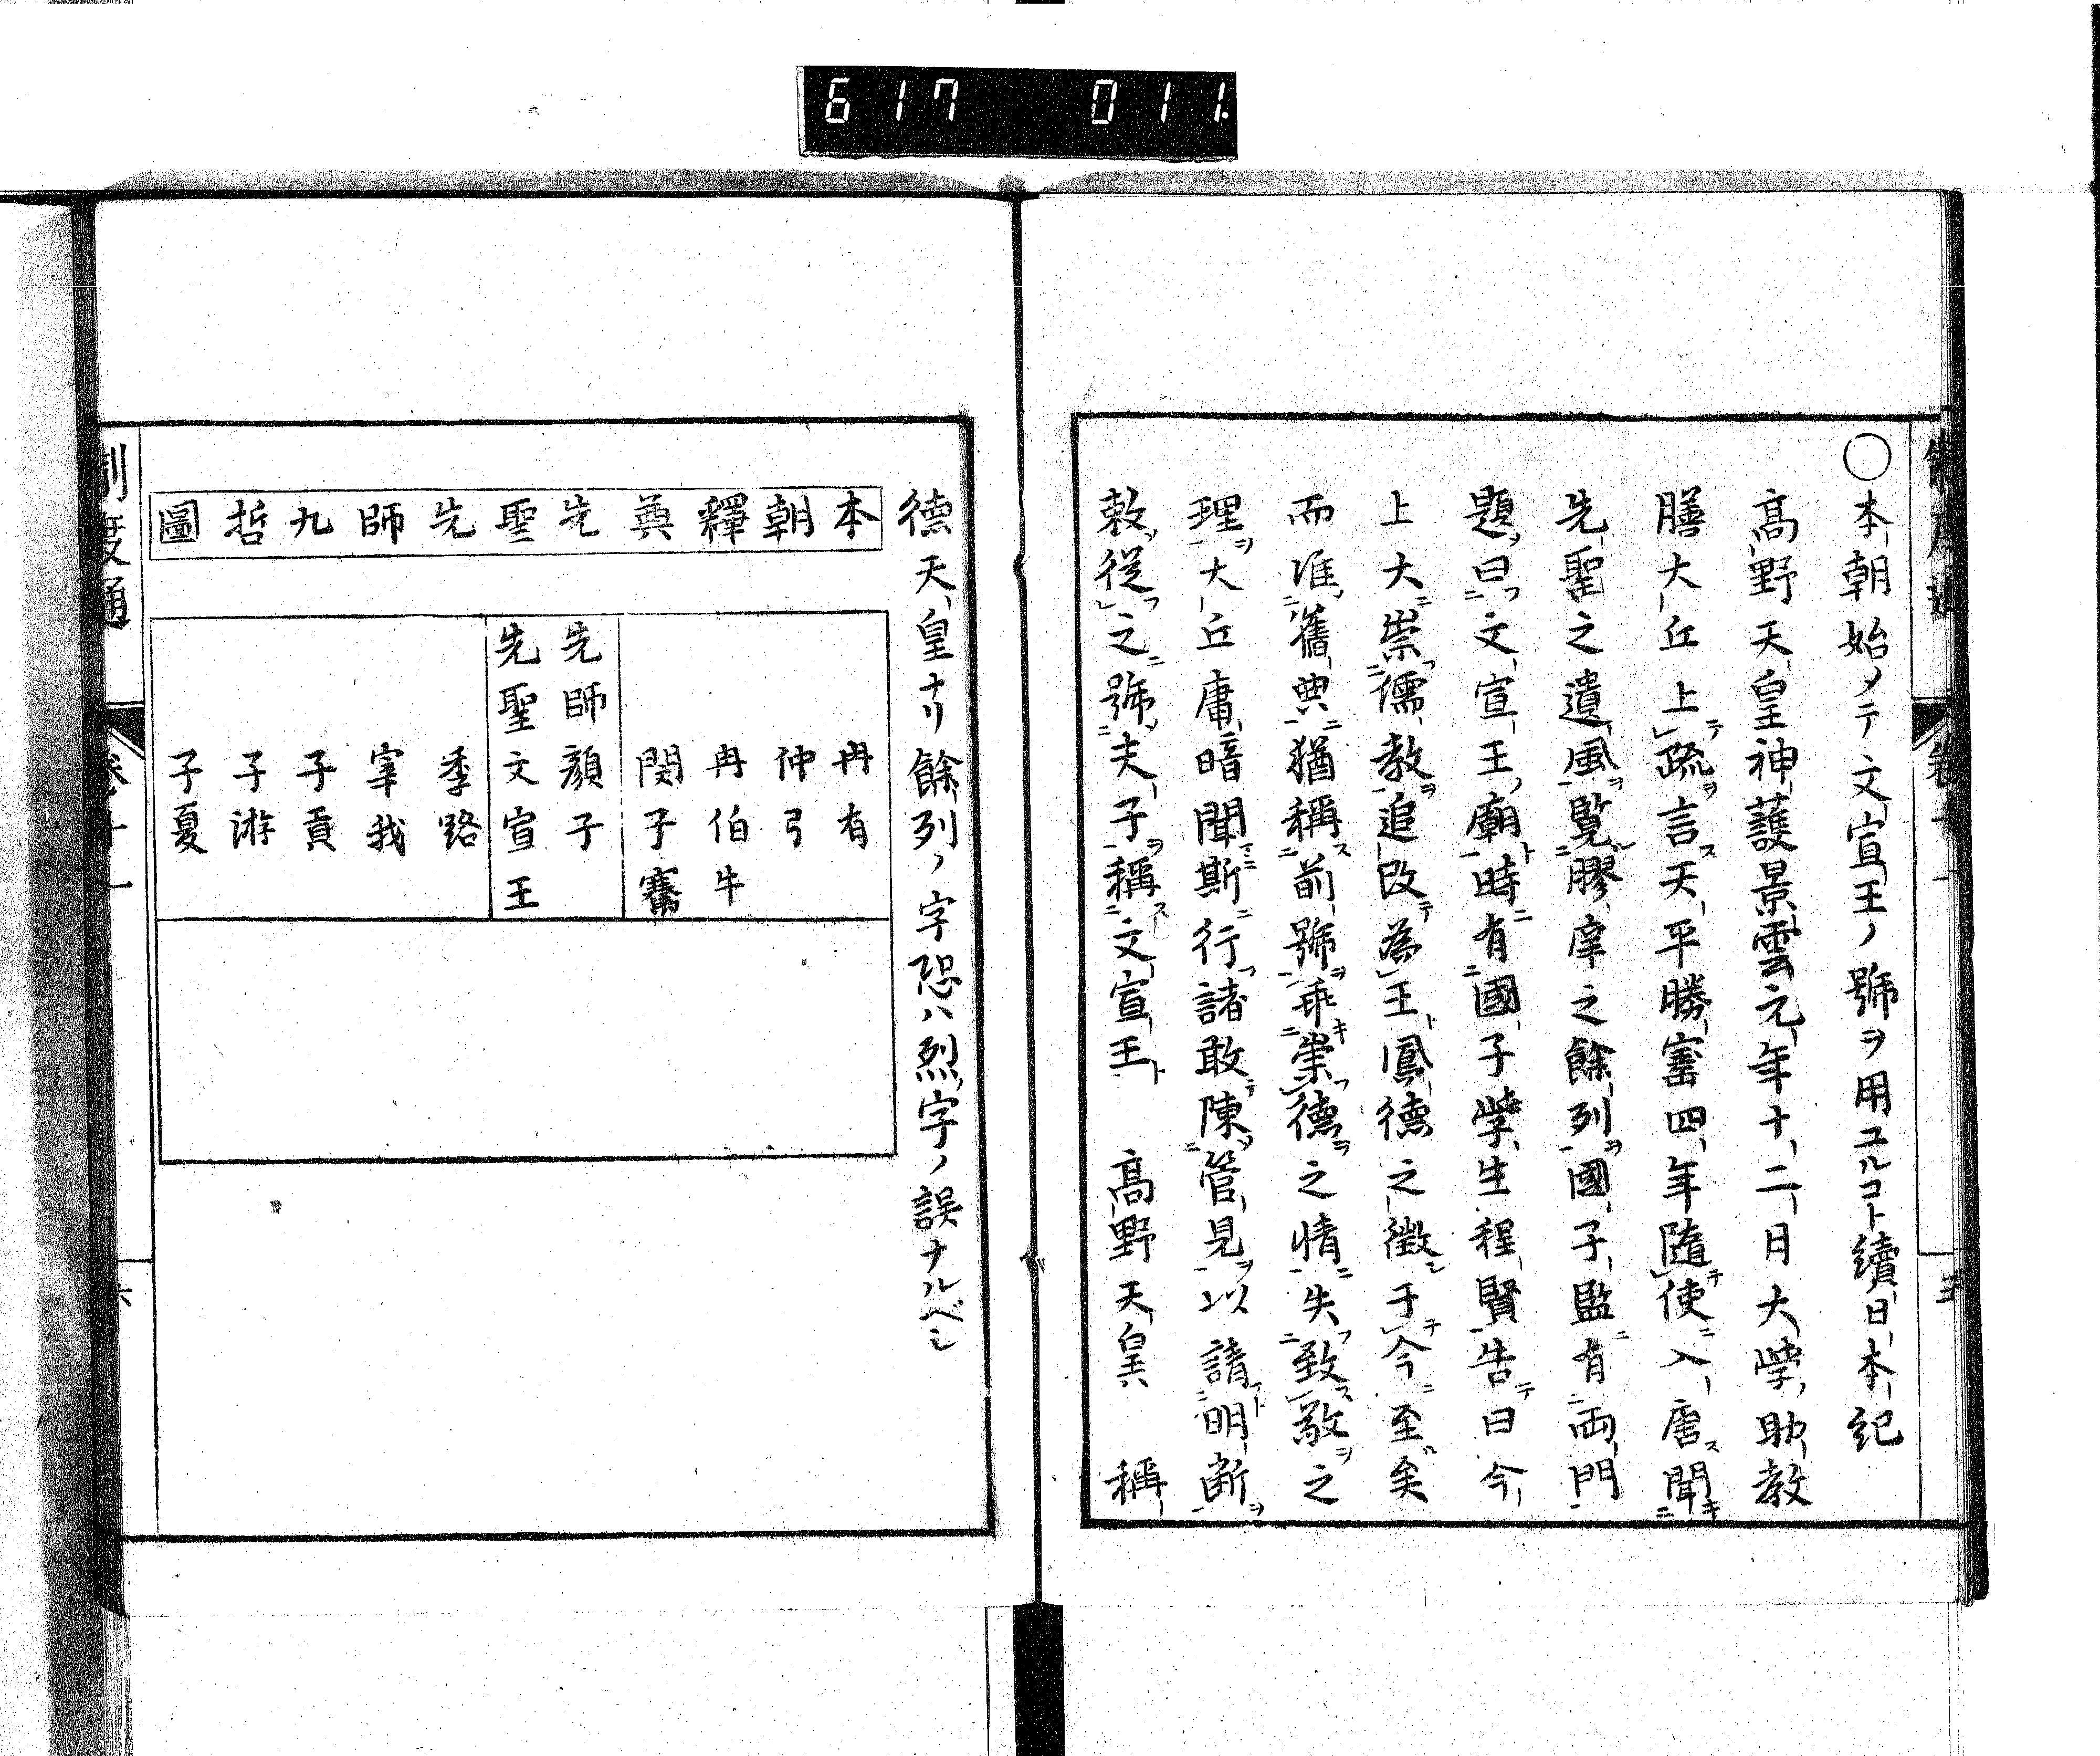 617 011
制度通 卷十一 五
〇本朝始メテ文宣王ノ號ヲ用ユルコト續日本紀
高野天皇神護景雲元年十二月大學助教
膳大丘上疏言天平勝寳四年隨使入唐聞
先聖之遺風覧膠庠之餘列國子監有兩門
題曰文宣王廟時有國子學生程賢告曰今
上大崇儒教追改為王鳳德之徵于今至矣
而准舊典猶稱前號乖崇德之情失致敬之
理大丘庸暗聞斯行諸敢陳管見以請明斷
敕從之號夫子稱文宣王　高野天皇　稱
德天皇ナリ餘列ノ字恐ハ烈字ノ誤ナルベシ
本朝釋奠先聖先師九哲圖
冉有
仲弓
冉伯牛
閔子騫
先師顔子
先聖文宣王
季路
宰我
子貢
子游
子夏
制度通 卷十一 六